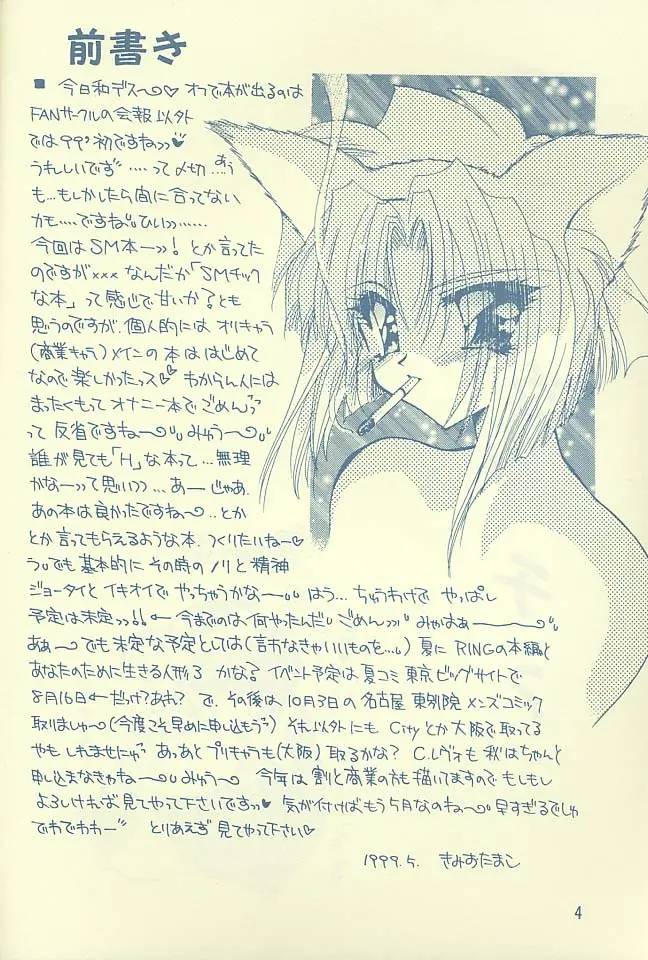 前書き
■ 今日和デス～♡ オフで本が出るのは
FANサークルの会報以外
では99'初ですねッ♥
うれしいです〃‥‥って〆切‥‥あう
も…もしかしたら間に合ってない
かも‥‥ですね〃ひいッ……
今回はSM本ーッ！とか言ってた
のですが××× なんだか「SMチック
な本」って感じで甘いか？とも
思うのですが、個人的には オリキャラ
(商業キャラ)メインの本は はじめて
なので楽しかったっス♡ わからん人には
まったくもってオナニー本でごめんっ
って 反省ですね～〃 みゅう～〃
誰が見ても「H」な本って…無理
かなーって思いッ…あーじゃあ、
あの本は良かったですね～‥とか
とか言ってもらえるような本、つくりたいね～♡
う〃でも 基本的に その時のノリと精神
ジョータイとイキオイでやっちゃうかな～〃 はう… ちゅうわけで やっぱし
予定は未定ッ!! ←今までのは何やったんだ〃ごめんッ〃 みゃはぁー〃
あぁ～ でも未定な予定としては(言わなきゃいいものを…〃) 夏に RINGの本編と
あなたのために生きる人形3 かな？ イベント予定は夏コミ 東京ビッグサイトで
8月16日←だっけ？あれ？ で、その後は10月3日の名古屋 東別院 メンズコミック
取りましゅ～(今度こそ早めに申し込もう〃) それ以外にも Cityとか大阪で取ってる
やも しれませにゅ〃 あっあと プリキャラも(大阪)取るかな？ C.レヴォも 秋はちゃんと
申し込まなきゃね～〃みゅう～ 今年は 割と商業の方も描いてますので もしもし
よろしければ見てやって下さいですッ♥ 気が付けばもう5月なのね～〃 早すぎるでしゅ
でわでわわー〃 とりあえず 見てやって下さい♡
1999.5. きみおたまこ
4